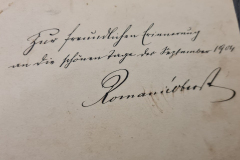 Zur freundlichen Erinnerung
an die schönen Tage des September 1904